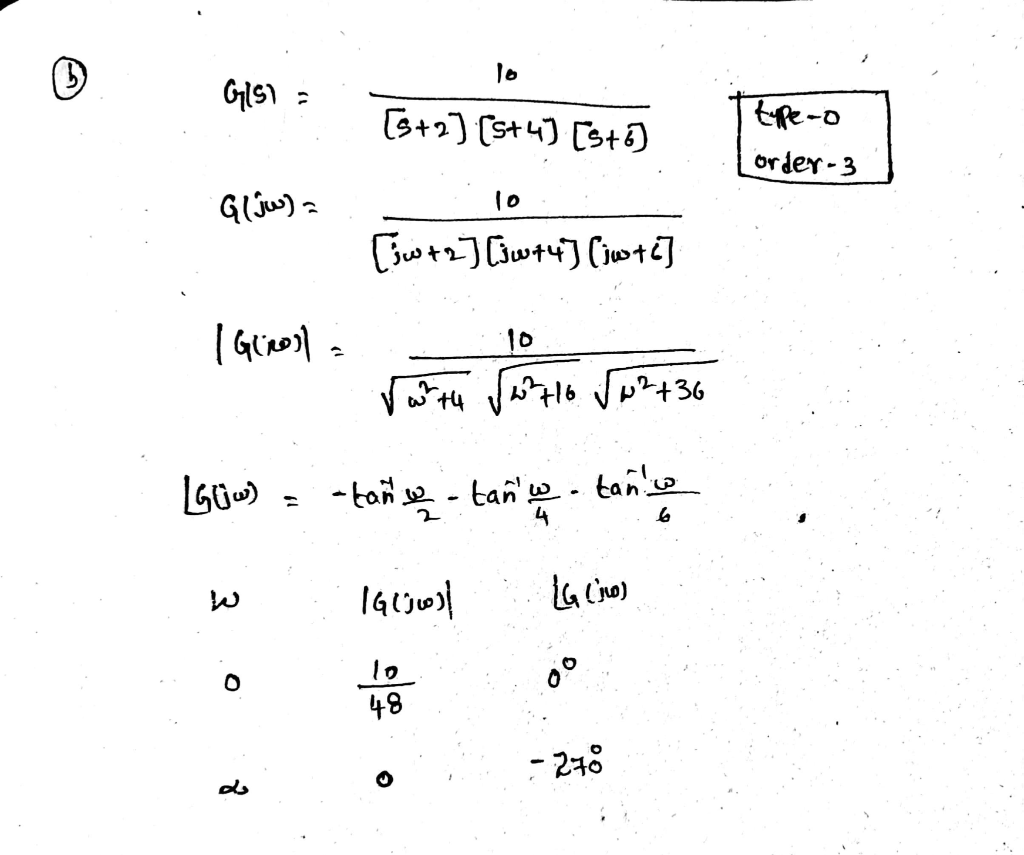 (b)
G(s) = 10 / [s+2] [s+4] [s+6]
type-0
order-3
G(jω) = 10 / [jω+2] [jω+4] [jω+6]
|G(jω)| = 10 / √ω²+4 √ω²+16 √ω²+36
∠G(jω) = -tan⁻¹ ω/2 - tan⁻¹ ω/4 - tan⁻¹ ω/6
ω |G(jω)| ∠G(jω)
0 10/48 0°
∞ 0 -270°